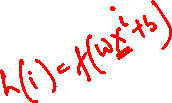 h(i) = f(wx^i + b)